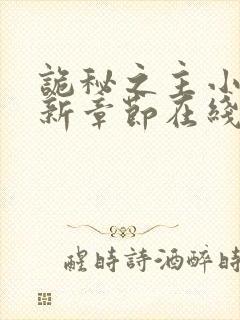 詭秘之主小
新章節在綫
醒時詩酒醉時